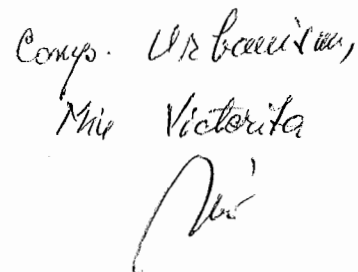 Comp. Urbanism,
Mie Victorita